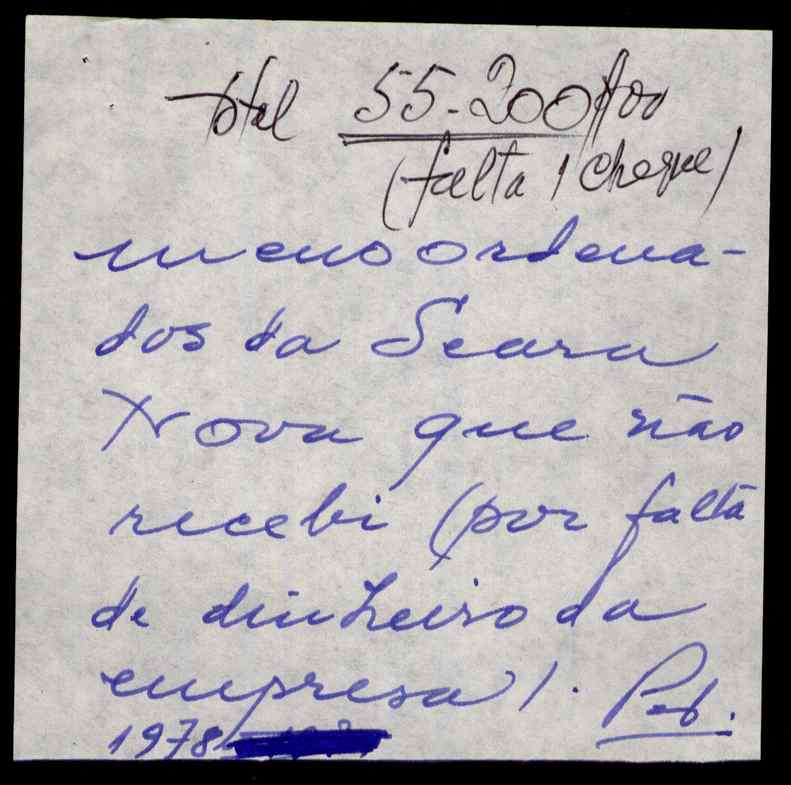 total 55-200$00
(falta 1 cheque)
meus ordena-
dos da Seara
Nova que não
recebi (por falta
de dinheiro da
empresa).
1978